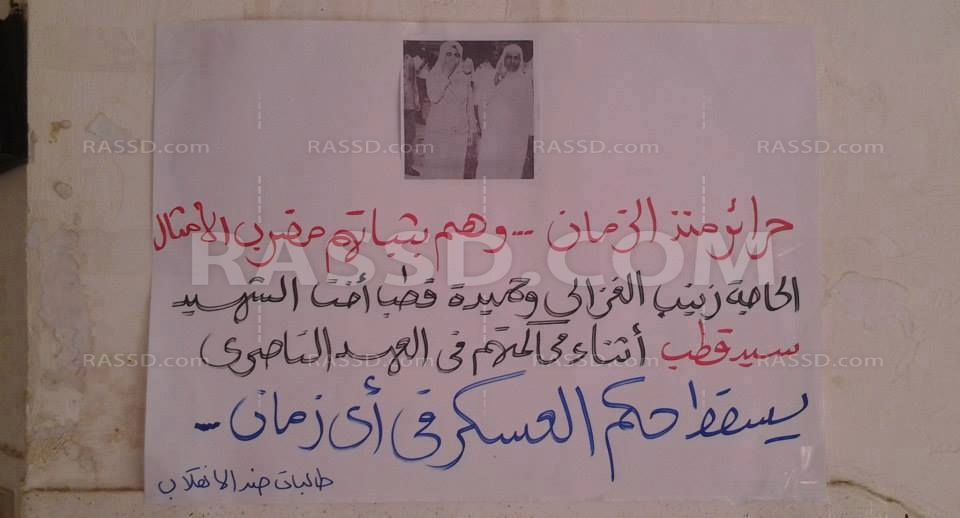 حرائر منذ الزمان ... وهم بثباتهم مضرب الأمثال
الحاجة زينب الغزالى وحميدة قطب أخت الشهيد
سيد قطب أثناء محاكمتهم فى العهد الناصرى
يسقط حكم العسكر فى أى زمان ...
طالبات ضد الانقلاب
RASSD.com RASSD.com RASSD.com
RASSD.COM
RASSD.com RASSD.com RASSD.com